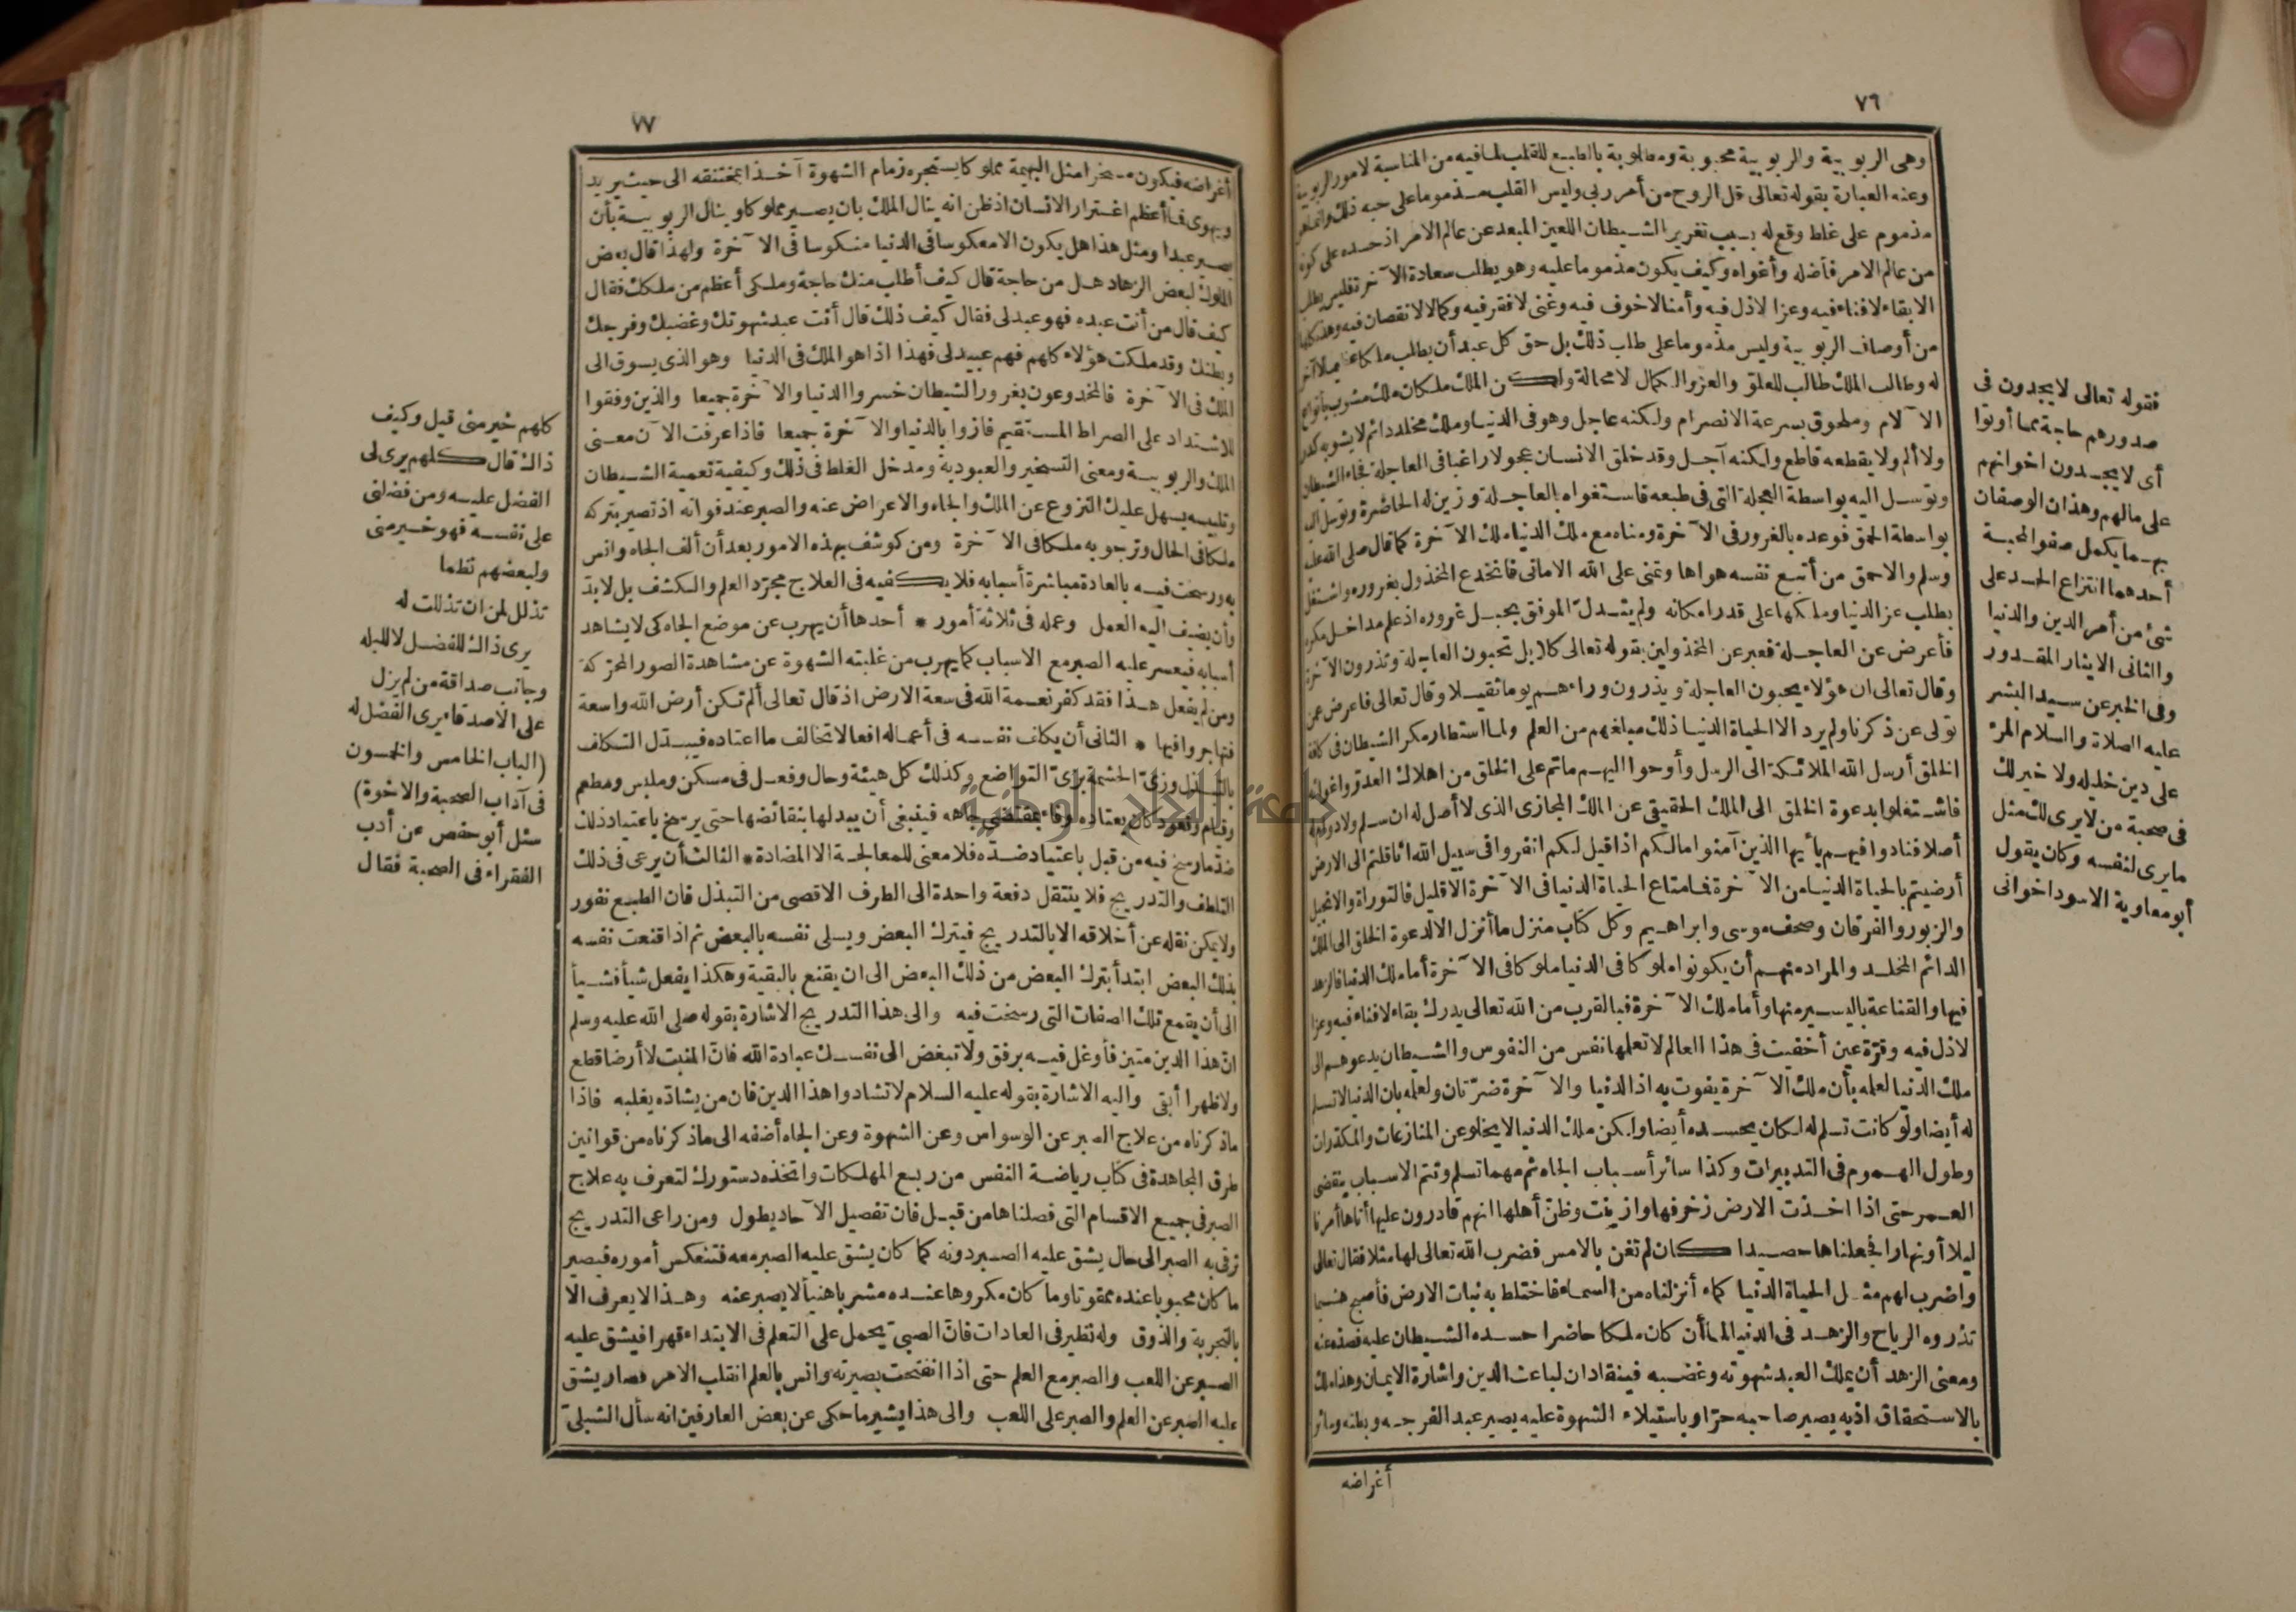 ٧٦
وهى الربوبية والربوبية محبوبة ومطلوبة بالطبع للقلب لما فيه من المناسبة لامور الربوبية
وعنه العبارة بقوله تعالى قل الروح من أمر ربى وليس القلب مذموما على حبه ذلك وانما هو
مذموم على غلط وقع له بسبب تغرير الشيطان اللعين المبعد عن عالم الامر اذ حسده على كونه
من عالم الامر فأضله وأغواه وكيف يكون مذموما عليه وهو يطلب سعادة الآخرة فليس يطلب
الابقاء لافناء فيه وعزا لاذل فيه وأمنا لاخوف فيه وغنى لافقر فيه وكمالا لانقصان فيه وهذه كلها
من أوصاف الربوبية وليس مذموما على طلب ذلك بل حق كل عبد أن يطلب ملكا عظيما لا آخر
له وطالب الملك طالب للعلو والعز والكمال لا محالة ولكن الملك ملكان ملك مشوب بأنواع
الآلام وملحوق بسرعة الانصرام ولكنه عاجل وهو فى الدنيا وملك مخلد دائم لا يشوبه كدر
ولا ألم ولا يقطعه قاطع ولكنه آجل وقد خلق الانسان عجولا راغبا فى العاجلة فجاء الشيطان
وتوسل اليه بواسطة العجلة التى فى طبعه فاستغواه بالعاجلة وزين له الحاضرة وتوسل اليه
بواسطة الحمق فوعده بالغرور فى الآخرة ومناه مع ملك الدنيا ملك الآخرة كما قال صلى الله عليه
وسلم والاحمق من أتبع نفسه هواها وتمنى على الله الامانى فانخدع المخذول بغروره واشتغل
بطلب عز الدنيا وملكها على قدر امكانه ولم يتدل الموفق بحبل غروره اذ علم مداخل مكره
فأعرض عن العاجلة فعبر عن المخذولين بقوله تعالى كلا بل تحبون العاجلة وتذرون الآخرة
وقال تعالى ان هؤلاء يحبون العاجلة ويذرون وراءهم يوما ثقيلا وقال تعالى فاعرض عن
تولى عن ذكرنا ولم يرد الا الحياة الدنيا ذلك مبلغهم من العلم ولما استطار مكر الشيطان فى كافة
الخلق أرسل الله الملائكة الى الرسل وأوحوا اليهم ماتم على الخلق من اهلاك العدو واغوائه
فاشتغلوا بدعوة الخلق الى الملك الحقيقى عن الملك المجازى الذى لا أصل له ان سلم ولا دوام له
أصلا فنادوا فيهم يأيها الذين آمنوا مالكم اذا قيل لكم انفروا فى سبيل الله اثاقلتم الى الارض
أرضيتم بالحياة الدنيا من الآخرة فما متاع الحياة الدنيا فى الآخرة الاقليل فالتوراة والانجيل
والزبور والفرقان وصحف موسى وابراهيم وكل كتاب منزل ما أنزل الا لدعوة الخلق الى الملك
الدائم المخلد والمراد منهم أن يكونوا ملوكا فى الدنيا ملوكا فى الآخرة أما ملك الدنيا فالزهد
فيها والقناعة باليسير منها وأما ملك الآخرة فبالقرب من الله تعالى يدرك بقاء لافناء فيه وعزا
لاذل فيه وقرة عين أخفيت فى هذا العالم لاتعلمها نفس من النفوس والشيطان يدعوهم الى
ملك الدنيا لعلمه بأن ملك الآخرة يفوت به اذ الدنيا والآخرة ضرتان ولعلمه بان الدنيا لاتسلم
له أيضا ولو كانت تسلم له لكان يحسده أيضا ولكن ملك الدنيا لا يخلو عن المنازعات والمكدرات
وطول الهموم فى التدبيرات وكذا سائر أسباب الجاه ثم مهما تسلم وتتم الاسباب ينقضى
العمر حتى اذا اخذت الارض زخرفها وازينت وظن أهلها انهم قادرون عليها أتاها أمرنا
ليلا أو نهارا فجعلناها حصيدا كان لم تغن بالامس فضرب الله تعالى لها مثلا فقال تعالى
واضرب لهم مثل الحياة الدنيا كماء أنزلناه من السماء فاختلط به نبات الارض فأصبح هشيما
تذروه الرياح والزهد فى الدنيا لما أن كان ملكا حاضرا حسده الشيطان عليه فصده عنه
ومعنى الزهد أن يملك العبد شهوته وغضبه فينقادان لباعث الدين واشارة الايمان وهذا ملك
بالاستحقاق اذ به يصير صاحبه حرا وباستيلاء الشهوة عليه يصير عبد الفرجه وبطنه وسائر
أغراضه
فقوله تعالى لا يجدون فى
صدورهم حاجة مما أوتوا
أى لا يجدون اخوانهم
على مالهم وهذان الوصفان
بهما يكمل صفو المحبة
أحدهما انتزاع الحسد على
شئ من أمر الدين والدنيا
والثانى الايثار المقدور
وفى الخبر عن سيد البشر
عليه الصلاة والسلام المرء
على دين خليله ولا خير لك
فى صحبة من لا يرى لك مثل
ما يرى لنفسه وكان يقول
أبو معاوية الاسود اخوانى
٧٧
أغراضه فيكون مسخرا مثل البهيمة مملوكا يستجره زمام الشهوة آخذا بمختنقه الى حيث يريد
ويهوى فما أعظم اغترار الانسان اذ ظن انه ينال الملك بان يصير مملوكا وينال الربوبية بأن
يصير عبدا ومثل هذا هل يكون الا معكوسا فى الدنيا منكوسا فى الآخرة ولهذا قال بعض
الملوك لبعض الزهاد هل من حاجة قال كيف أطلب منك حاجة وملكى أعظم من ملكك فقال
كيف قال من أنت عبده فهو عبد لى فقال كيف ذلك قال أنت عبد شهوتك وغضبك وفرجك
وبطنك وقد ملكت هؤلاء كلهم فهم عبيد لى فهذا اذا هو الملك فى الدنيا وهو الذى يسوق الى
الملك فى الآخرة فالمخدوعون بغرور الشيطان خسروا الدنيا والآخرة جميعا والذين وفقوا
للاشتداد على الصراط المستقيم فازوا بالدنيا والآخرة جميعا فاذا عرفت الآن معنى
الملك والربوبية ومعنى التسخير والعبودية ومدخل الغلط فى ذلك وكيفية تعمية الشيطان
وتلبيسه يسهل عليك النزوع عن الملك والجاه والاعراض عنه والصبر عند فواته اذ تصير بتركه
ملكا فى الحال وترجو به ملكا فى الآخرة ومن كوشف بهذه الامور بعد أن ألف الجاه وانس
به ورسخت فيه بالعادة مباشرة أسبابه فلا يكفيه فى العلاج مجرد العلم والكشف بل لابد
وأن يضيف اليه العمل وعمله فى ثلاثة أمور * أحدها أن يهرب عن موضع الجاه كى لا يشاهد
أسبابه فيعسر عليه الصبر مع الاسباب كما يهرب من غلبته الشهوة عن مشاهدة الصور المحركة
ومن لم يفعل هذا فقد كفر نعمة الله فى سعة الارض اذ قال تعالى ألم تكن أرض الله واسعة
فتهاجروا فيها * الثانى أن يكلف نفسه فى أعماله افعالا تخالف ما اعتاده فيبدل التكلف
بالتبذل وزى الحشمة بزى التواضع وكذلك كل هيئة وحال وفعل فى مسكن وملبس ومطعم
وقيام وقعود كان يعتاده وفاء بمقتضى جاهه فينبغى أن يبدلها بنقائضها حتى يرسخ باعتياد ذلك
ضد ما رسخ فيه من قبل باعتياد ضده فلا معنى للمعالجة الا المضادة * الثالث أن يرعى فى ذلك
التلطف والتدريج فلا ينتقل دفعة واحدة الى الطرف الاقصى من التبذل فان الطبع نفور
ولا يمكن نقله عن أخلاقه الا بالتدريج فيترك البعض ويسلى نفسه بالبعض ثم اذا قنعت نفسه
بذلك البعض ابتدأ بترك البعض من ذلك البعض الى ان يقنع بالبقية وهكذا يفعل شيأ فشيأ
الى أن يقمع تلك الصفات التى رسخت فيه والى هذا التدريج الاشارة بقوله صلى الله عليه وسلم
ان هذا الدين متين فأوغل فيه برفق ولا تبغض الى نفسك عبادة الله فان المنبت لا أرضا قطع
ولا ظهرا أبقى واليه الاشارة بقوله عليه السلام لا تشادوا هذا الدين فان من يشاده يغلبه فاذا
ما ذكرناه من علاج الصبر عن الوسواس وعن الشهوة وعن الجاه أضفه الى ما ذكرناه من قوانين
طرق المجاهدة فى كتاب رياضة النفس من ربع المهلكات واتخذه دستورك لتعرف به علاج
الصبر فى جميع الاقسام التى فصلناها من قبل فان تفصيل الآحاد يطول ومن راعى التدريج
ترقى به الصبر الى حال يشق عليه الصبر دونه كما كان يشق عليه الصبر معه فتنعكس أموره فيصير
ما كان محبوبا عنده ممقوتا وما كان مكروها عنده مشربا هنيأ لا يصبر عنه وهذا لا يعرف الا
بالتجربة والذوق وله نظير فى العادات فان الصبى يحمل على التعلم فى الابتداء قهرا فيشق عليه
الصبر عن اللعب والصبر مع العلم حتى اذا انفتحت بصيرته وانس بالعلم انقلب الامر فصار يشق
عليه الصبر عن العلم والصبر على اللعب والى هذا يشير ما حكى عن بعض العارفين انه سأل الشبلى
كلهم خير منى قيل وكيف
ذاك قال كلهم يرى لى
الفضل عليه ومن فضلنى
على نفسه فهو خير منى
ولبعضهم نظما
تذلل لمن ان تذللت له
يرى ذاك للفضل لا للبله
وجانب صداقة من لم يزل
على الاصدقاء يرى الفضل له
(الباب الخامس والخمسون
فى آداب الصحبة والاخوة)
سئل أبو حفص عن أدب
الفقراء فى الصحبة فقال
جامعة النجاح الوطنية